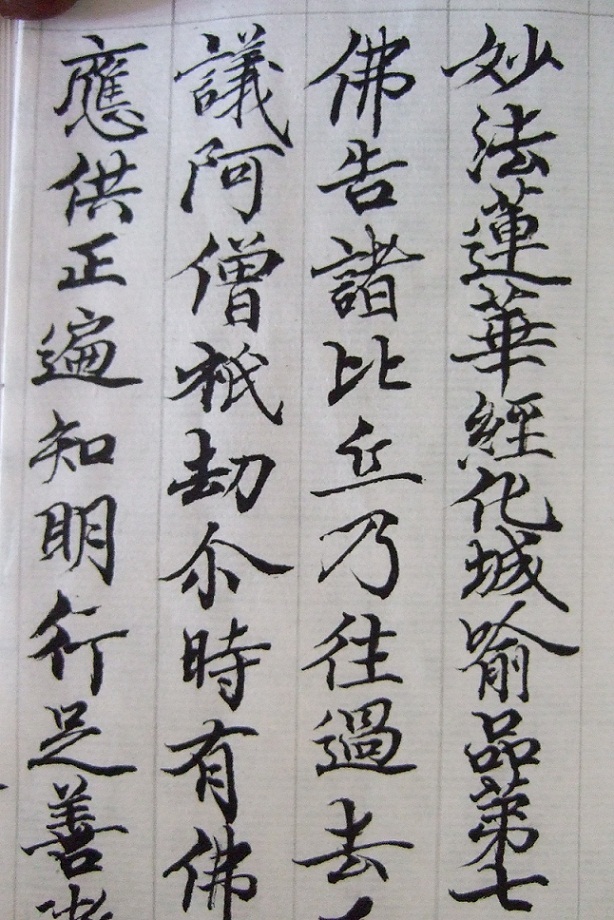 妙法蓮華經化城喻品第七
佛告諸比丘乃往過去
議阿僧祇劫尒時有佛
應供正遍知明行足善